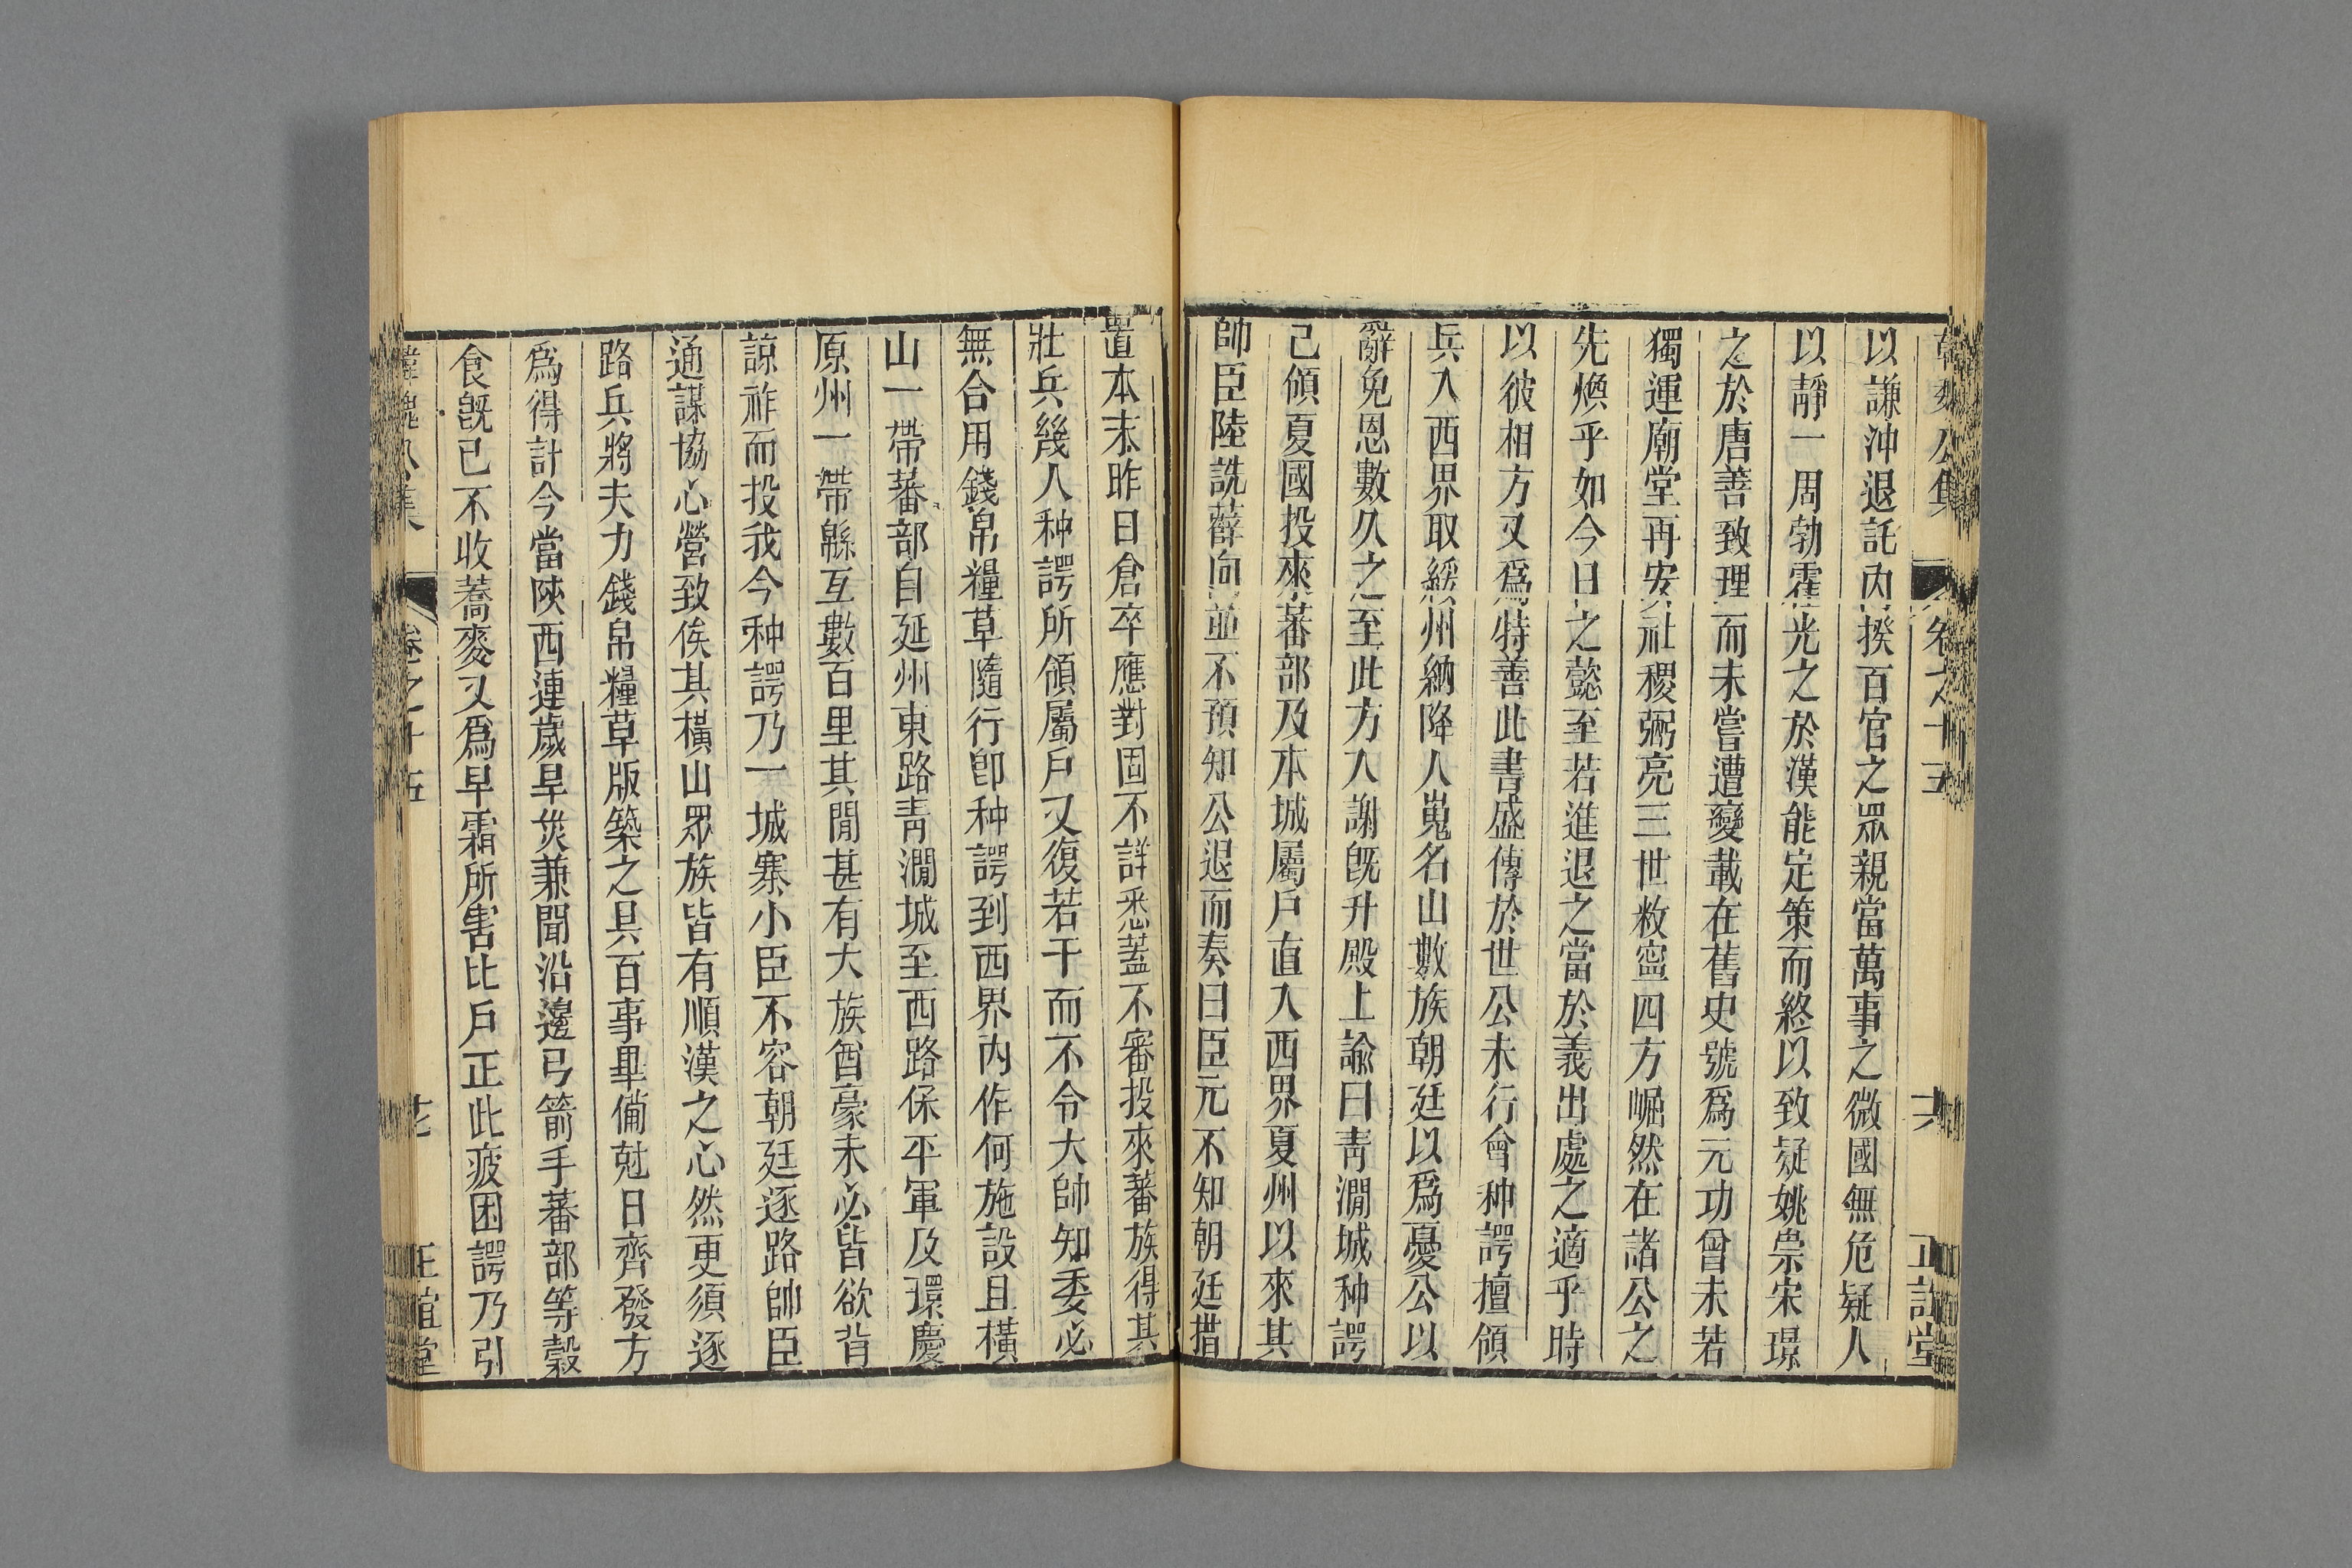 韓魏公集 卷之十五 十六 正誼堂
以謙沖退託內揆百官之眾親當萬事之微國無危疑人
以靜一周勃霍光之於漢能定策而終以致疑姚崇宋璟
之於唐善致理而未嘗遭變載在舊史號爲元功曾未若
獨運廟堂再安社稷弼亮三世敉寧四方崛然在諸公之
先煥乎如今日之懿至若進退之當於義出處之適乎時
以彼相方又爲特善此書盛傳於世公未行會种諤擅領
兵入西界取綏州納降人嵬名山數族朝廷以爲憂公以
辭免恩數久之至此方入謝既升殿上諭曰青澗城种諤
己領夏國投來蕃部及本城屬戶直入西界夏州以來其
帥臣陸詵薛向並不預知公退而奏曰臣元不知朝廷措
置本末昨日倉卒應對固不詳悉蓋不審投來蕃族得其
壯兵幾人种諤所領屬戶又復若干而不令大帥知委必
無合用錢帛糧草隨行卽种諤到西界內作何施設且橫
山一帶蕃部自延州東路青澗城至西路保平軍及環慶
原州一帶緜互數百里其閒甚有大族酋豪未必皆欲背
諒祚而投我今种諤乃一城寨小臣不容朝廷逐路帥臣
通謀協心營致俟其橫山眾族皆有順漢之心然更須逐
路兵將夫力錢帛糧草版築之具百事畢備尅日齊發方
爲得計今當陝西連歲旱災兼聞沿邊弓箭手蕃部等穀
食既已不收蕎麥又爲早霜所害比戶正此疲困諤乃引
韓魏公集 卷之十五 正誼堂